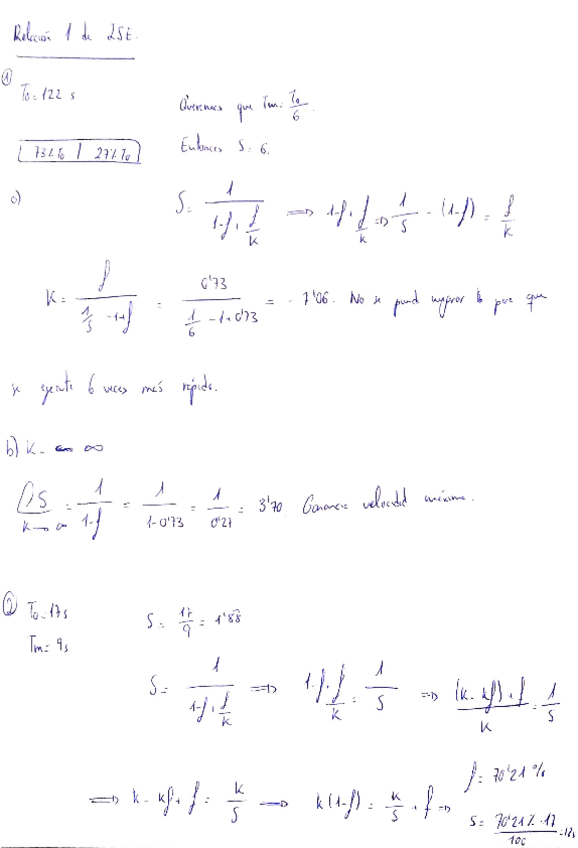 Relación 1 de ISE.
①
To = 122 s
Queremos que Tm = To/6.
73% To | 27% To
Entonces S = 6.
a)
S = 1/(1-f + f/k) ⟹ 1-f + f/k ⟹ 1/S - (1-f) = f/k
K = f/(1/S - 1+f) = 0'73/(1/6 - 1 + 0'73) = -7'06. No se pued mejorar lo para que
se ejecute 6 veces más rápido.
b) K → ∞
S k→∞ = 1/(1-f) = 1/(1-0'73) = 1/0'27 = 3'70 Ganancia velocidad máxima.
② To = 17s
S = 17/9 = 1'88
Tm = 9s
S = 1/(1-f + f/k) ⟹ 1-f + f/k = 1/S ⟹ ((k - kf) + f)/K = 1/S
⟹ k - kf + f = k/S ⟹ k(1-f) = k/S + f ⟹
f = 70'21 %
S = 70'21% · 17/100 = 12s